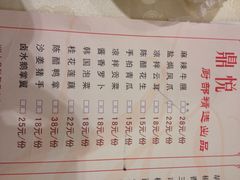 鼎悦
厨部精选出品
麻辣牛腱 □□ 28元/份
盐焗凤爪 □□ 22元/份
凉拌云耳 □□ 18元/份
陈醋花生 □□ 18元/份
手拍青瓜 □□ 18元/份
凉拌贡菜 □□ 18元/份
酱香萝卜 □□ 18元/份
韩国泡菜 □□ 18元/份
桂花莲藕 □□ 22元/份
陈醋鸭掌 □□ 38元/份
沙姜猪手 □□ 18元/份
卤水鹅掌翼 □□ 25元/份